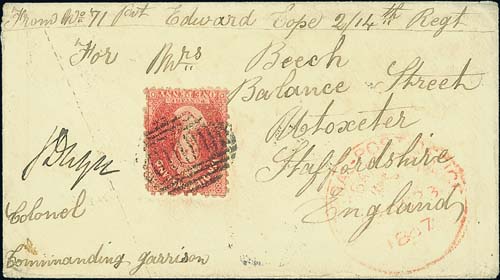 From No 71 Pvt Edward Cope 2/14th Regt
For Mrs Beech
Balance Street
Utoxeter
Staffordshire
England
Colonel
Commanding Garrison
1867